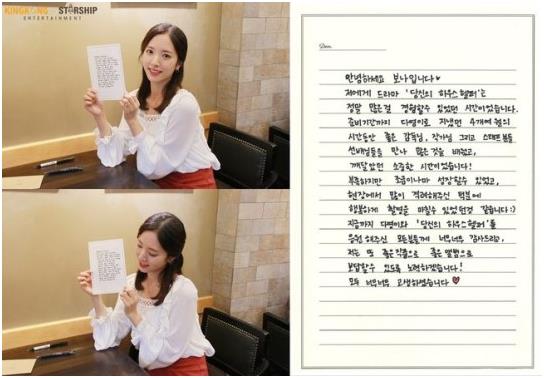 KINGKONG by STARSHIP
ENTERTAINMENT
Dear.
안녕하세요 보나입니다♥
저에게 드라마 '당신의 하우스헬퍼'는
정말 많은걸 경험할수 있었던 시간이였습니다.
준비기간까지 다영이로 지냈던 4개여월의
시간동안 좋은 감독님, 작가님 그리고 스태프분들
선배님들을 만나 많은것을 배웠고,
깨달았던 소중한 시간이였습니다!
부족하지만 조금이나마 성장할수 있었고,
현장에서 많이 격려해주신 덕분에
행복하게 촬영을 마칠수 있었던것 같습니다:)
지금까지 다영이와 '당신의 하우스헬퍼'를
응원해주신 모든분들께 너무너무 감사드리고,
저는 또 좋은작품으로 좋은 앨범으로
보답할수 있도록 노력하겠습니다!
모두 너무너무 고생하셨습니다♥